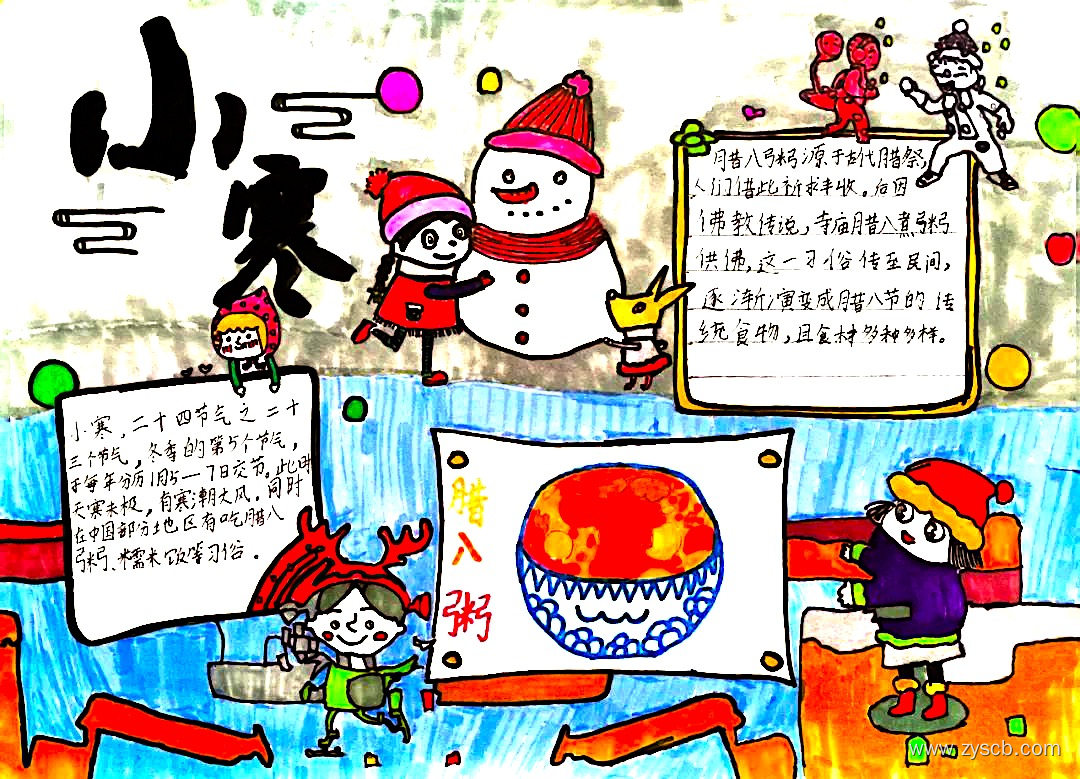 小寒
腊八粥源于古代腊祭,
人们借此祈求丰收。后因
佛教传说,寺庙腊八煮粥
供佛,这一习俗传至民间,
逐渐演变成腊八节的传
统食物,且食材多种多样。
小寒,二十四节气之二十
三个节气,冬季的第5个节气,
于每年公历1月5—7日交节。此时
天寒未极,有寒潮大风。同时
在中国部分地区有吃腊八
粥、糯米饭等习俗。
腊八粥
www.zyscb.com